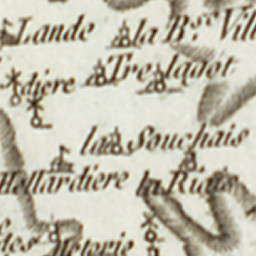 Lande
la B.sse Vill
diere
Tre lagot
la Souchais
Hellardiere
la Riais
Meterie